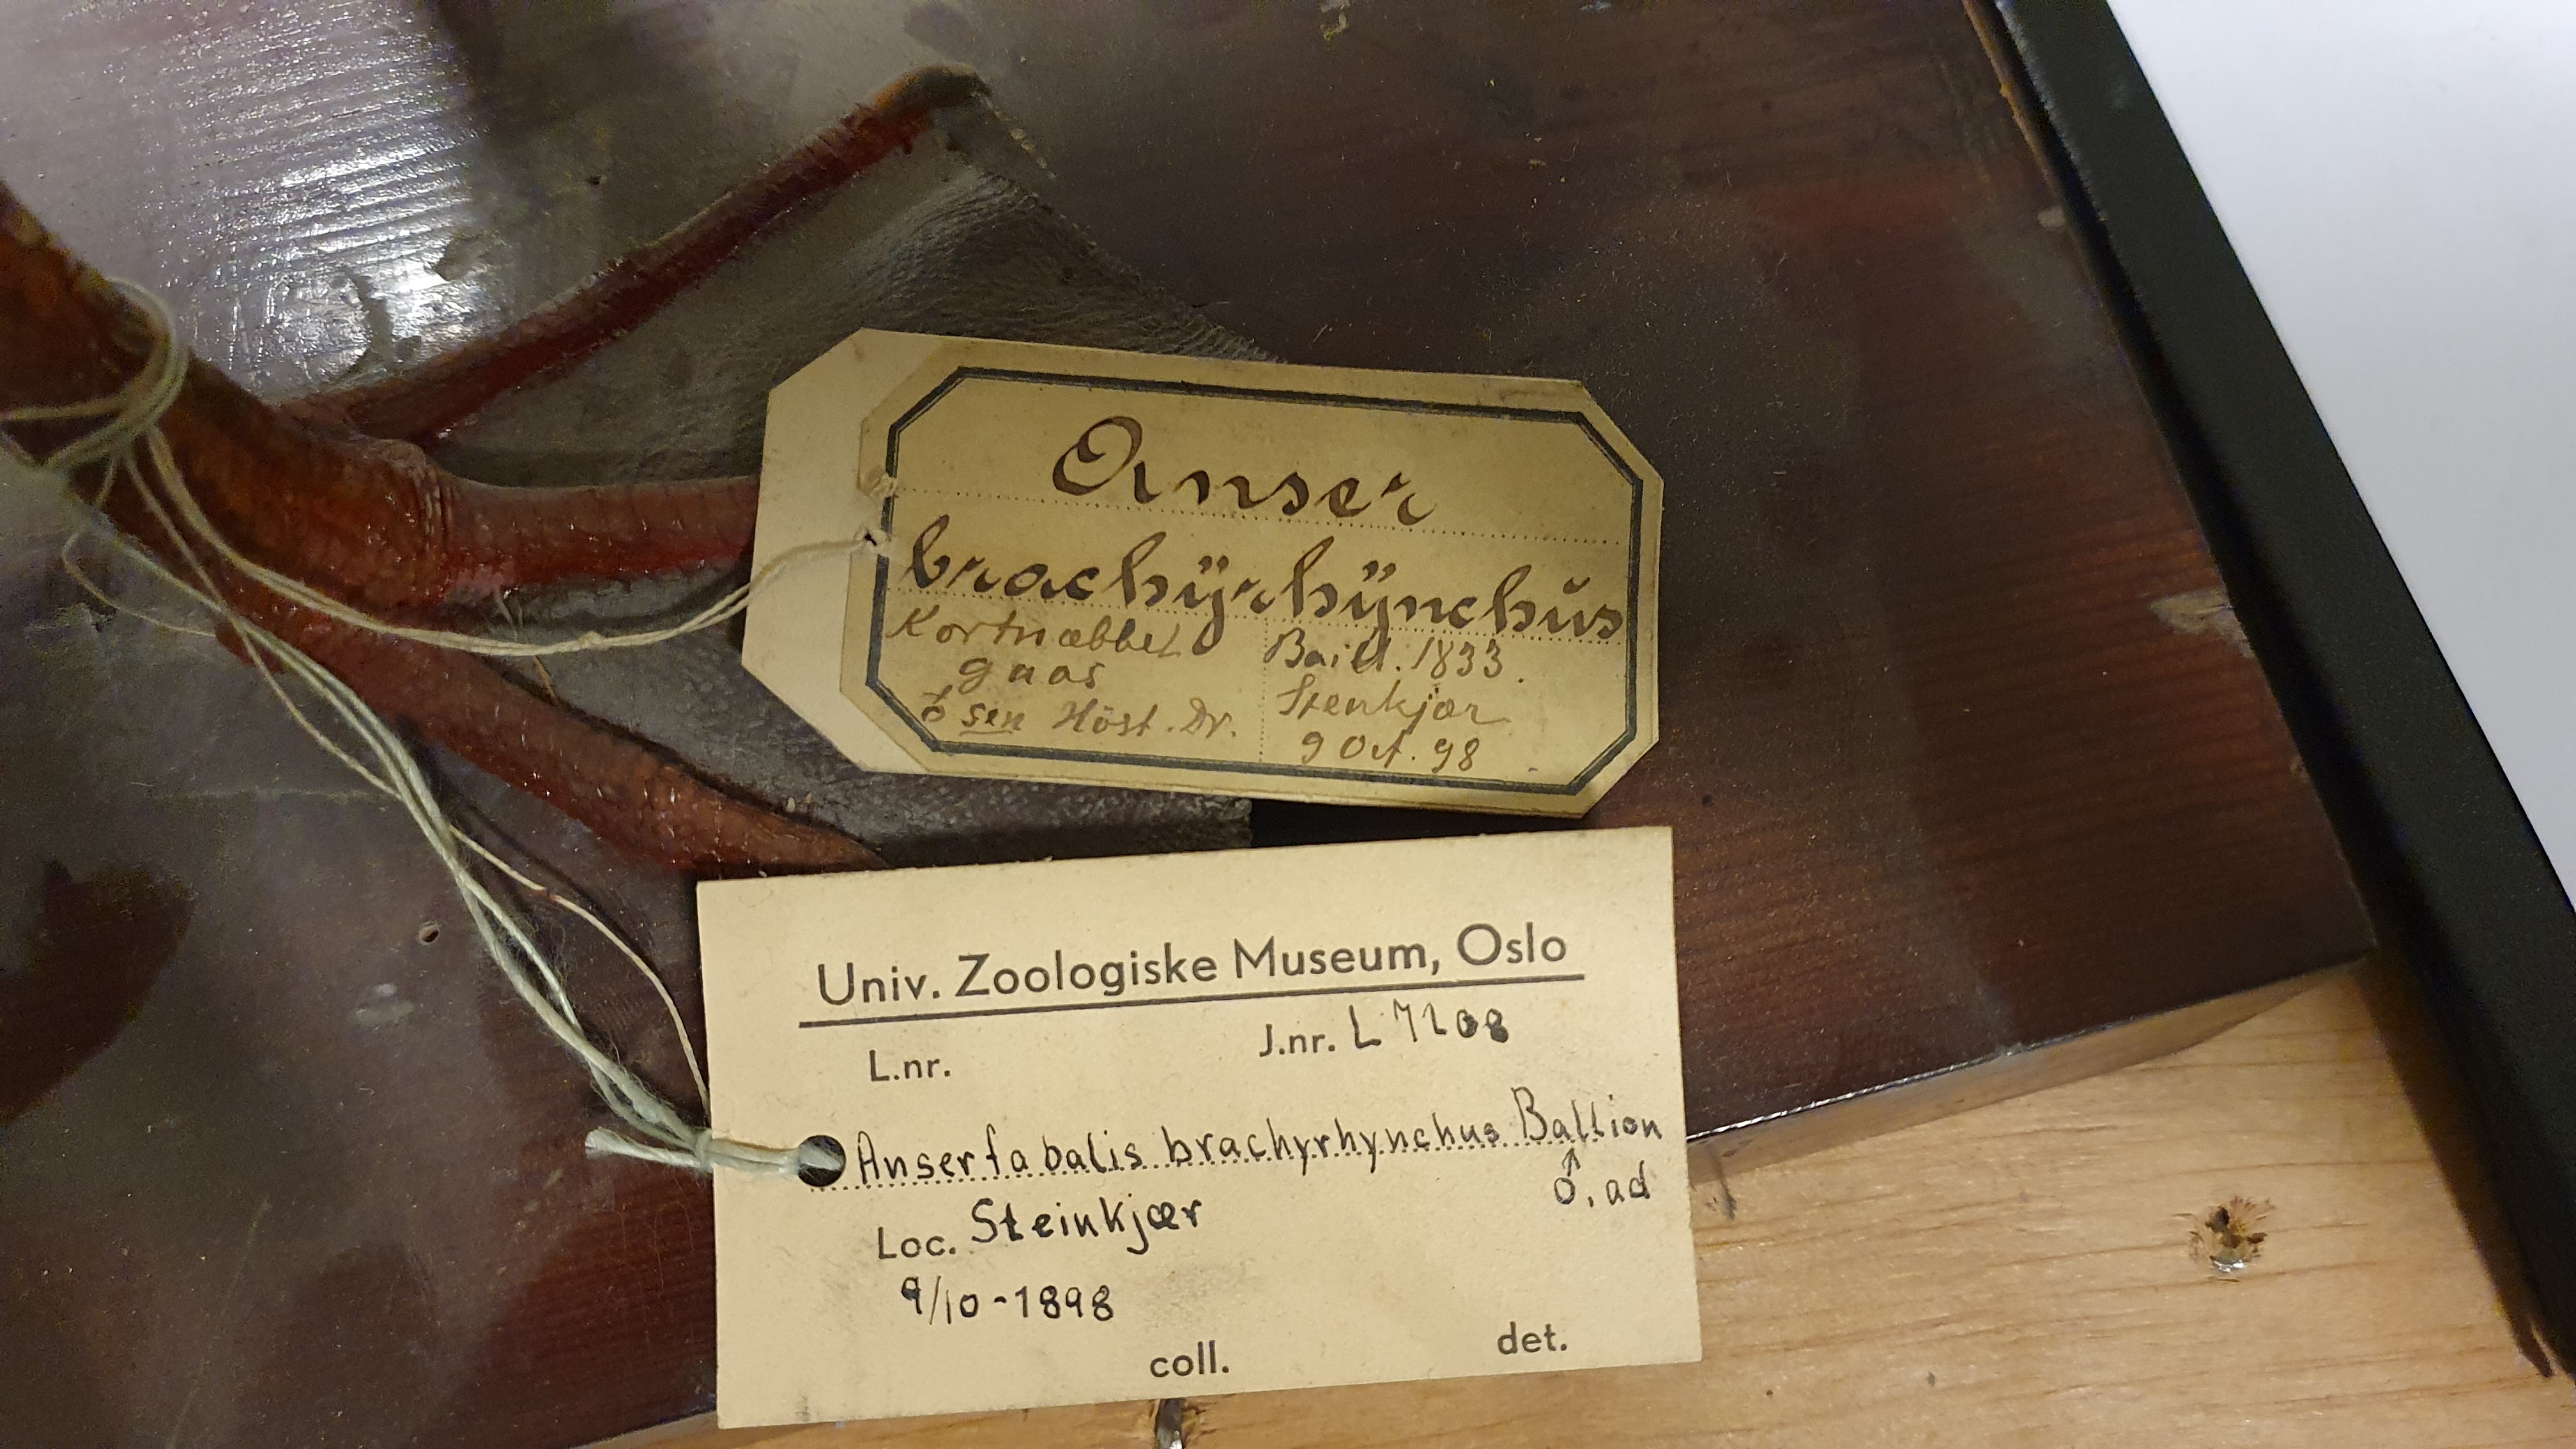 Anser
brachÿrhÿnchŭs
Kortnæbbet
gaas
♂ sen Höst. Dr.
Baill. 1833.
Stenkjær
9 Oct. 98
Univ. Zoologiske Museum, Oslo
L.nr. J.nr. L 7208
Anser fabalis brachyrhynchus Ballion
♂, ad
Loc. Steinkjær
9/10-1898
coll. det.